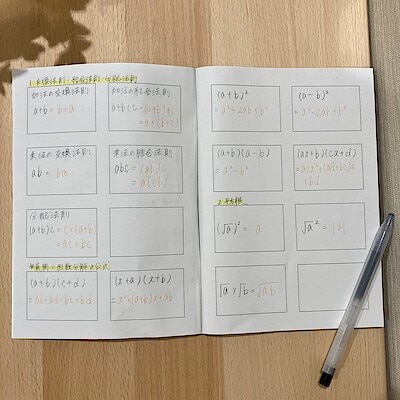 1.交換法則・結合法則・分配法則
加法の交換法則
a+b = b+a
加法の結合法則
a+b+c = (a+b)+c
= a+(b+c)
乗法の交換法則
ab = ba
乗法の結合法則
abc = (ab)c
= a(bc)
分配法則
(a+b)c = c×(a+b)
= ac+bc
展開・因数分解の公式
(a+b)(c+d)
= ac+ad+bc+bd
(x+a)(x+b)
= x²+(a+b)x+ab
(a+b)²
= a²+2ab+b²
(a-b)²
= a²-2ab+b²
(a+b)(a-b)
= a²-b²
(ax+b)(cx+d)
= acx²+(ad+bc)x
+bd
2.平方根
(√a)² = a
√a² = |a|
√a×√b = √ab